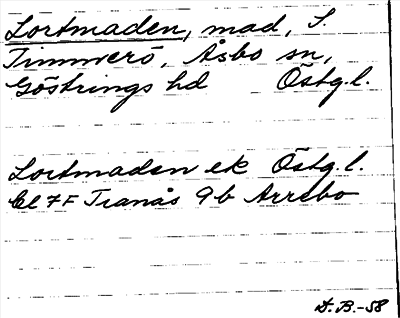 Lortmaden, mad, S.
Timmerö, Åsbo sn,
Göstrings hd Östg.l.
Lortmaden ek Östg.l.
bl 7F Tranås 9b Arrebo
D.B.-58